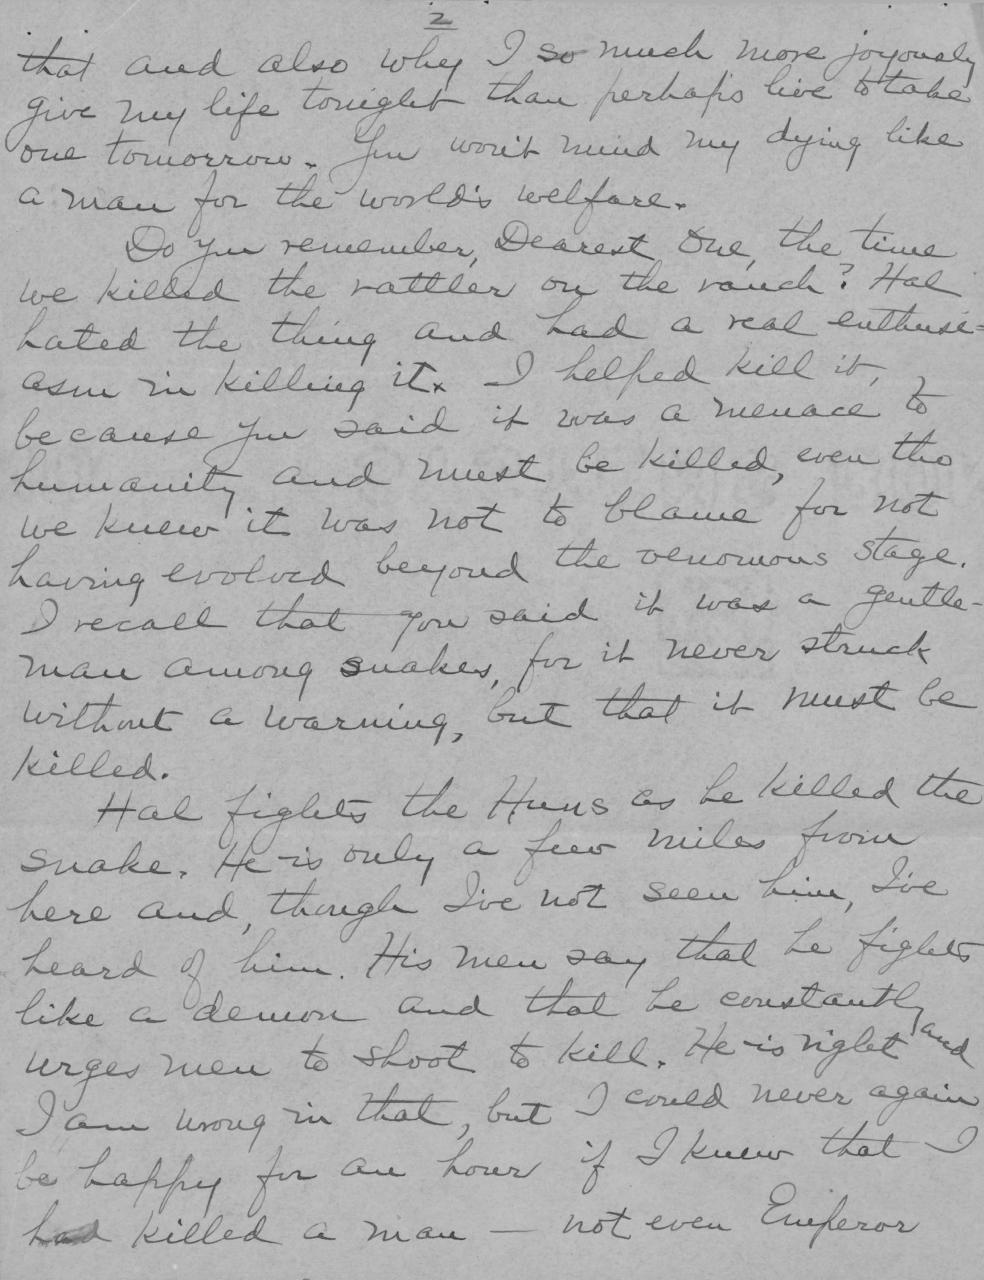 2
that and also why I so much more joyously
give my life tonight than perhaps live to take
one tomorrow. You won't mind my dying like
a man for the world's welfare.
Do you remember, Dearest One, the time
we killed the rattler on the ranch? Hal
hated the thing and had a real enthusi-
asm in killing it. I helped kill it,
because you said it was a menace to
humanity and must be killed, even tho
we knew it was not to blame for not
having evolved beyond the venomous stage.
I recall that you said it was a gentle-
man among snakes, for it never struck
without a warning, but that it must be
killed.
Hal fights the Huns as he killed the
snake. He is only a few miles from
here and, though I've not seen him, I've
heard of him. His men say that he fights
like a demon and that he constantly
urges men to shoot to kill. He is right and
I am wrong in that, but I could never again
be happy for an hour if I knew that I
had killed a man — not even Emperor